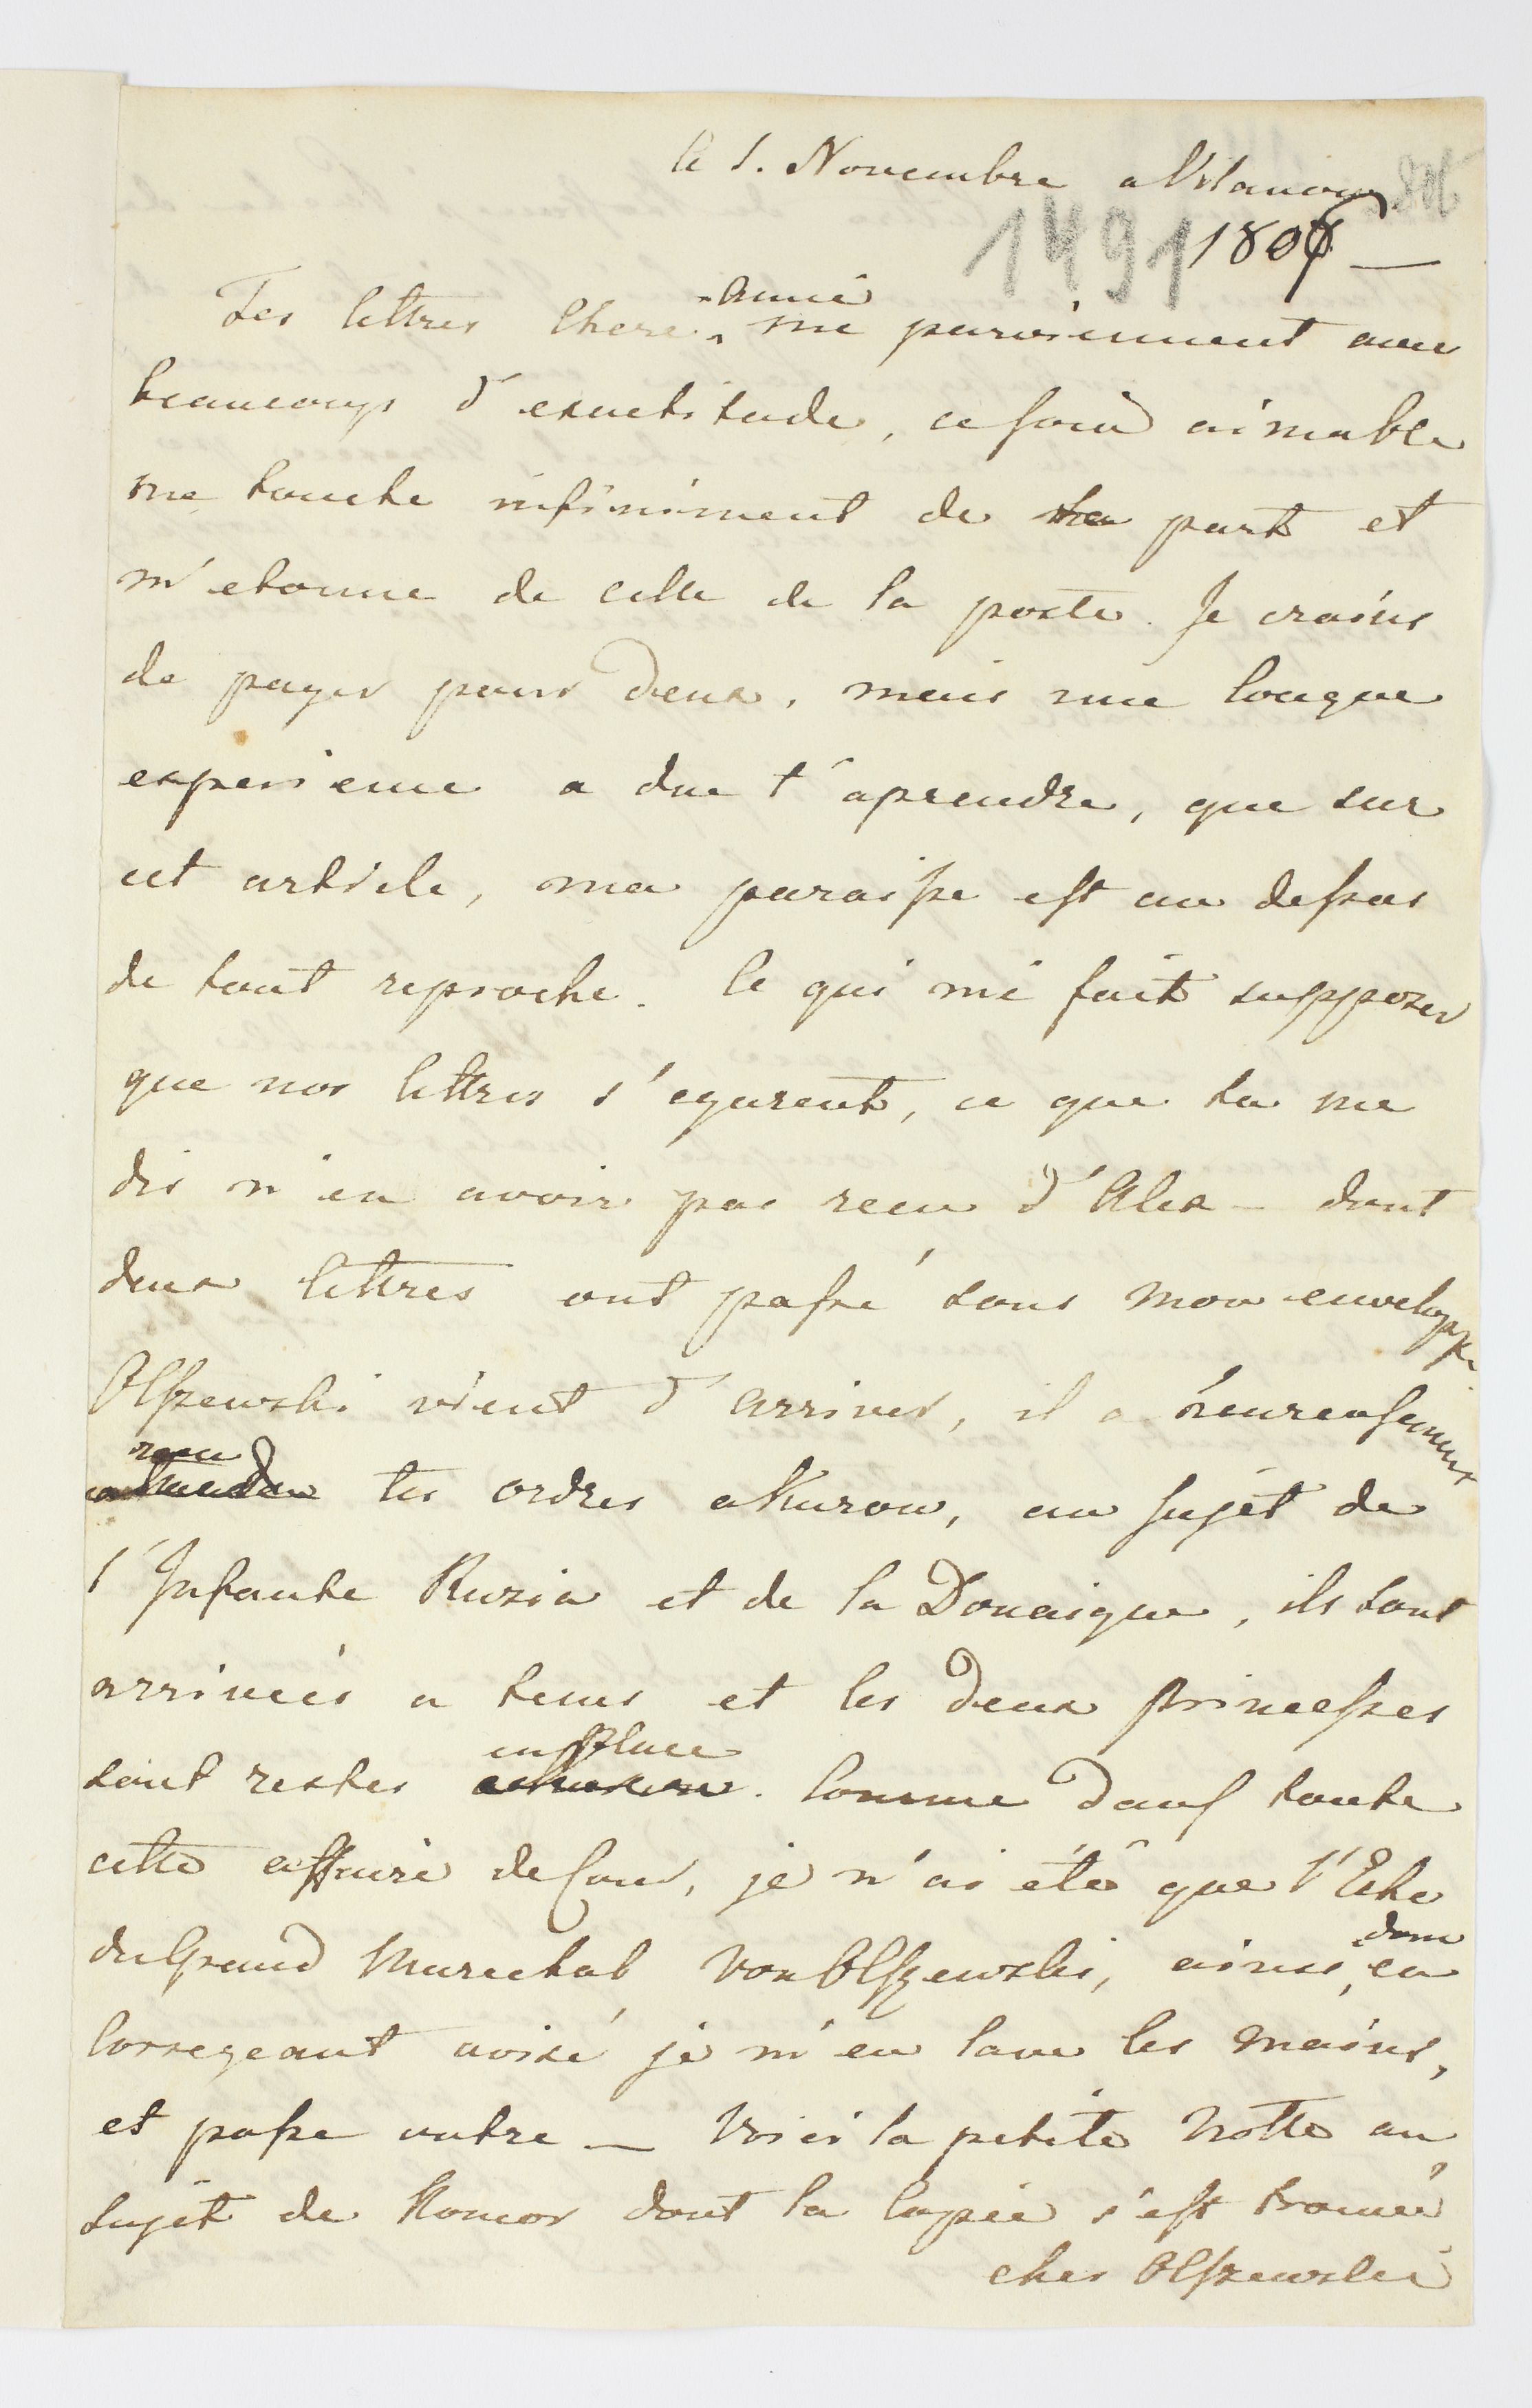 le 1. Novembre a Vilanow
806
1491 1806 —
Tes lettres chere Amie me parviennent avec
beaucoups d'exactitude, ce soin aimable
me touche infiniment de ta part et
m'etonne de celle de la poste. Je crains
de payer pour deux, mais une longue
experience a due t'aprendre, que sur
cet article, ma paraisse est au dessus
de tout reproche. Ce qui me fait supposer
que nos lettres s'egarent, ce que tu me
dis n'en avoir pas recu d'Alex – dont
deux lettres ont passé sous mon enveloppe
Olszewski vient d'arriver, il a heureusement
recu tes ordres a Kurow, au sujet de
l'Infante Ruzia et de la Douaigue, ils sont
arrivés a tems et les deux Princesses
sont restes en place. Comme dans toute
cette affaire de Cour, je n'ai été que l'Echo
du Grand Marechal von Olszewski, ainsi dom
Corregeant avisé je m'en lave les mains,
et passe outre — Voici la petite Notte au
sujet de Komor dont la Copie s'est trouvé
chez Olszewski